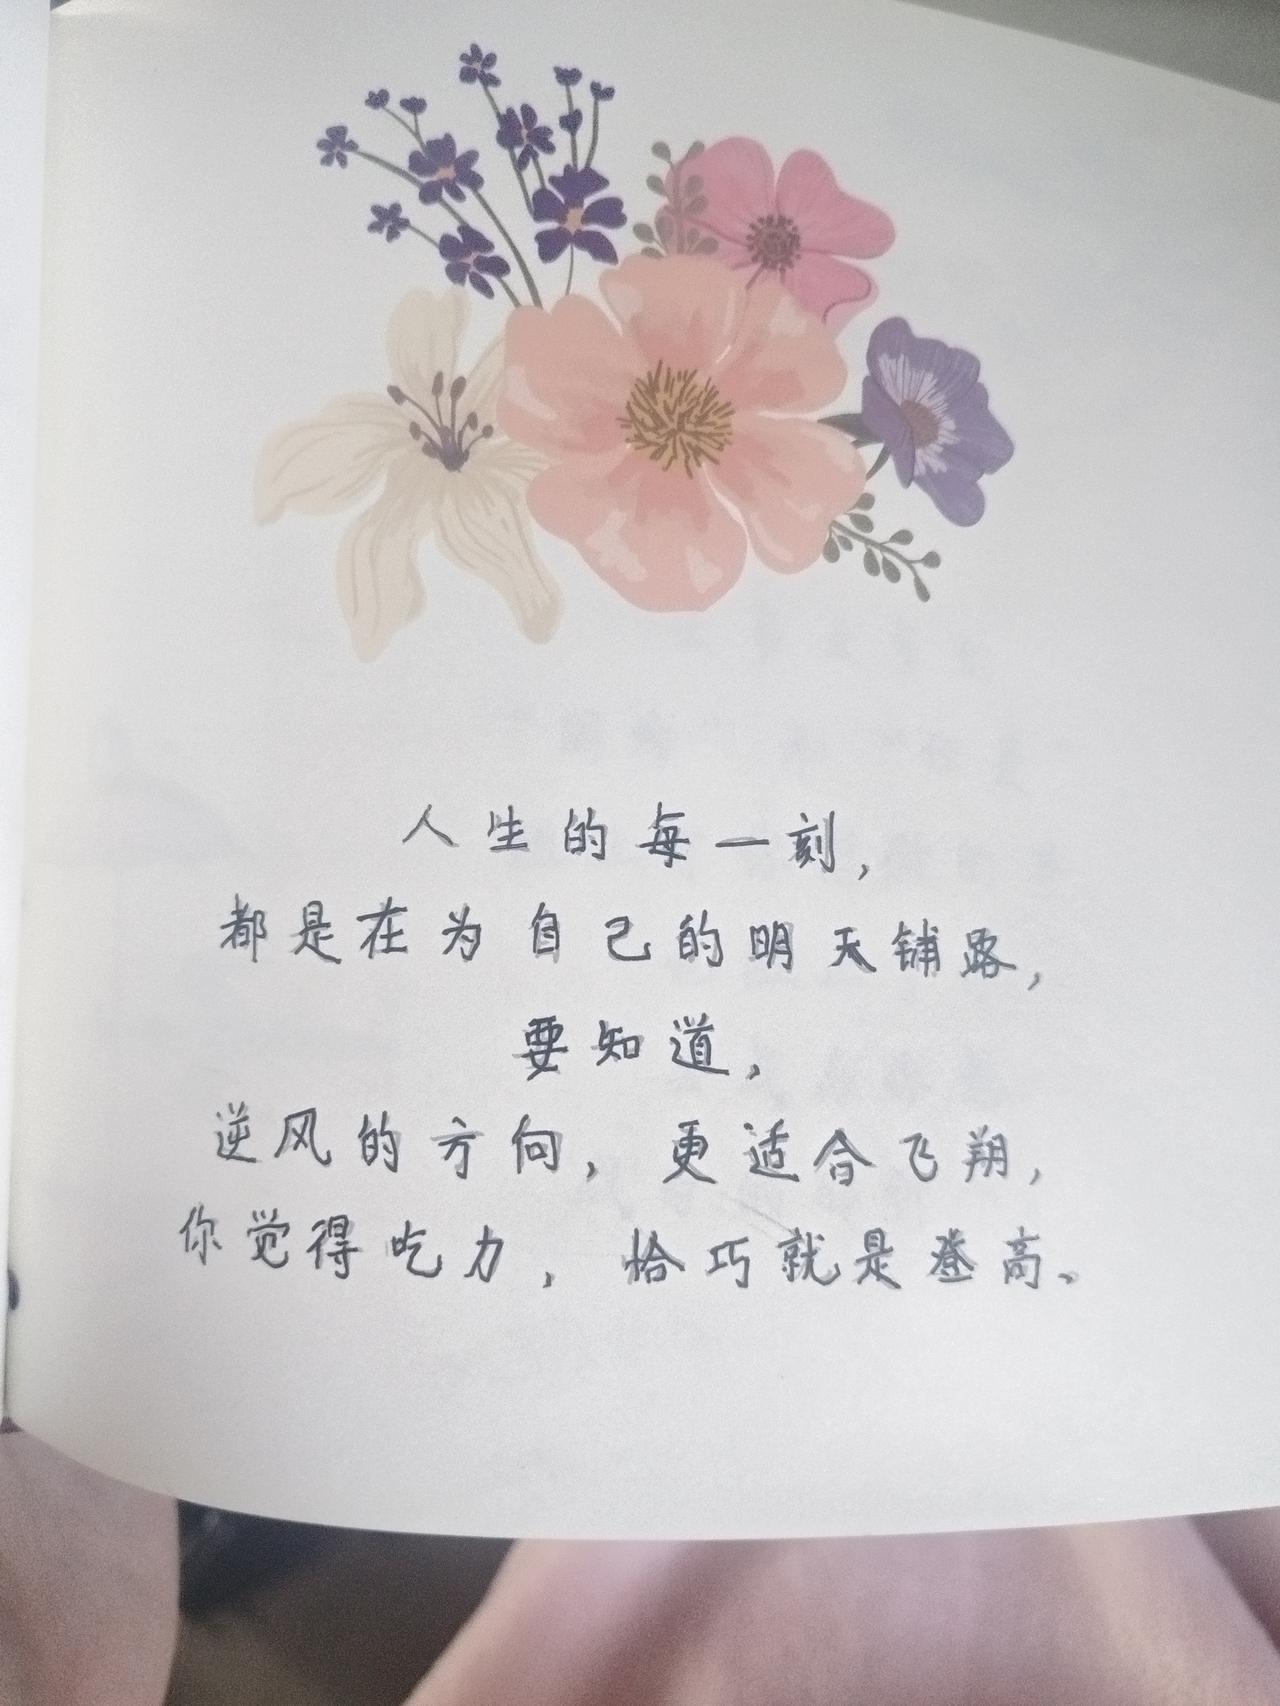 人生的每一刻，
都是在为自己的明天铺路，
要知道，
逆风的方向，更适合飞翔，
你觉得吃力，恰巧就是登高。